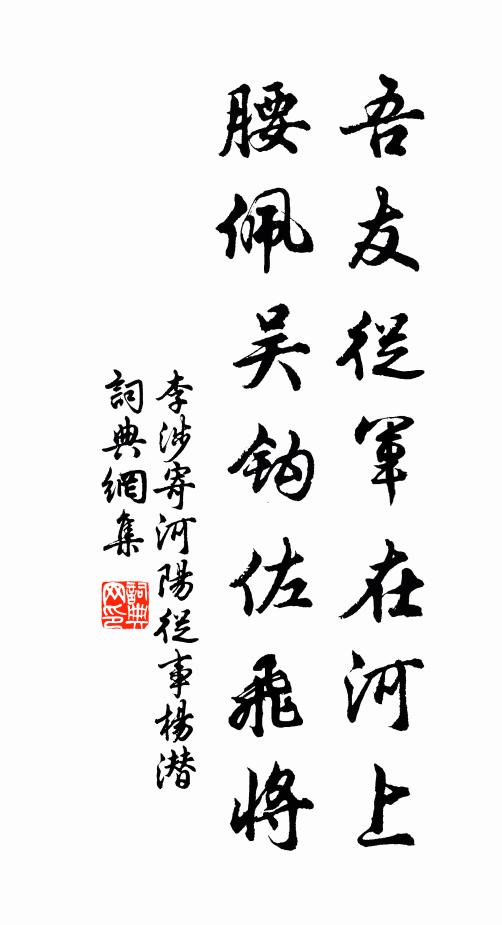 吾友從軍在河上
腰佩吴鈎佐飛將
李涉寄河陽從事楊潜
詞典網集
詞典网印